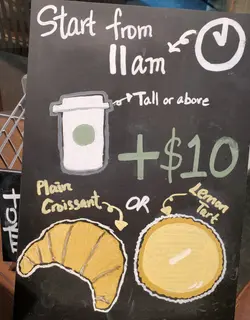 Start from
11am
Tall or above
+$10
Plain
Croissant
OR
Lemon
Tart